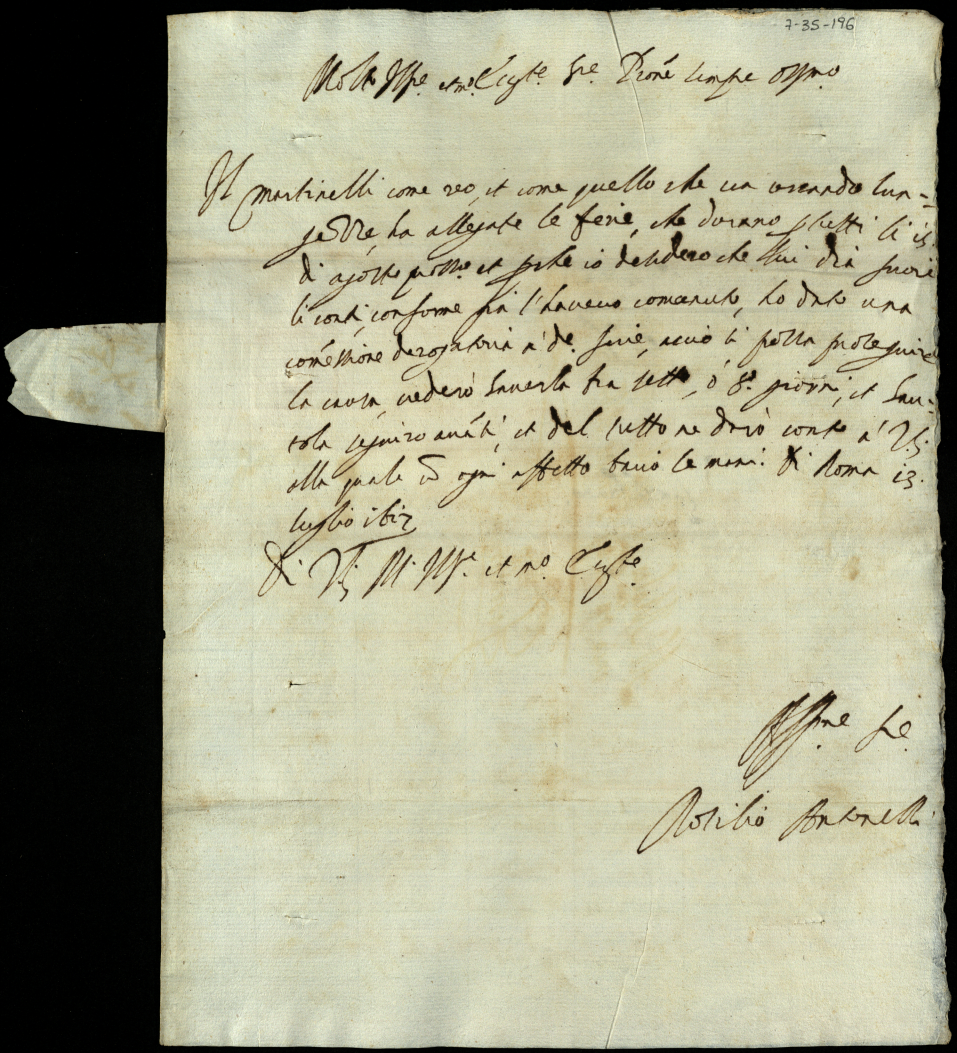 7-35-196
Molto Ill.re et m.to Ecc.te S.re Prone sempre oss.mo
Il martinelli come reo, et come quello che va cercando lun-
ghezze, ha allegate le ferie, che durano p tutti li 15
di agosto pross.o et perche io desidero che lui dia fuori
li conti, conforme già l'havevo comenuto, ho dato una
comessione derogatoria a' de. ferie, acciò si possa proseguire
la causa, vederò haverla fra sette, ò 8.o giorni, et hau-
tola seguirò auāti, et del tutto ne darò conto a' V.S.
alla quale cō ogni affetto bacio le mani. Di Roma 13.
luglio 1617
Di V.S. M. Ill.re et m.o Ecc.te
Aff.mo se.
Rutilio Antonelli